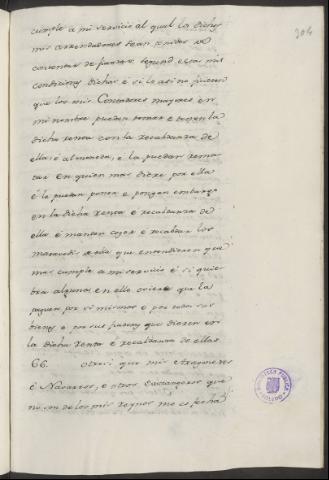 304
cumple a mi servicio al qual los dichos
mis arrendadores sean tenidos de
contentar de fianzas segund estas mis
condiciones dichas é si lo asi no ficieren
que los mis Contadores mayores en
mi nombre puedan tomar é tomen la
dicha renta con la recabdanza de
ellas é almoneda, e la puedan rema
tar en quien mas diere por ella
é la puedan poner e pongan embargo
en la dicha renta e recabdanza de
ella é manden cojer e recabdar los
maravedis de ella que entendieren que
mas cumple a mi servicio é si quie
bra alguna en ello oviere que la
paguen por si mismos e por todos sus
bienes e por sus fiadores que dieren en
la dicha renta e recabdanza de ellas
66. otrosi que mis Aragoneses
é Navarros, e otros Estrangeros que
no son de los mis regnos me es fecha